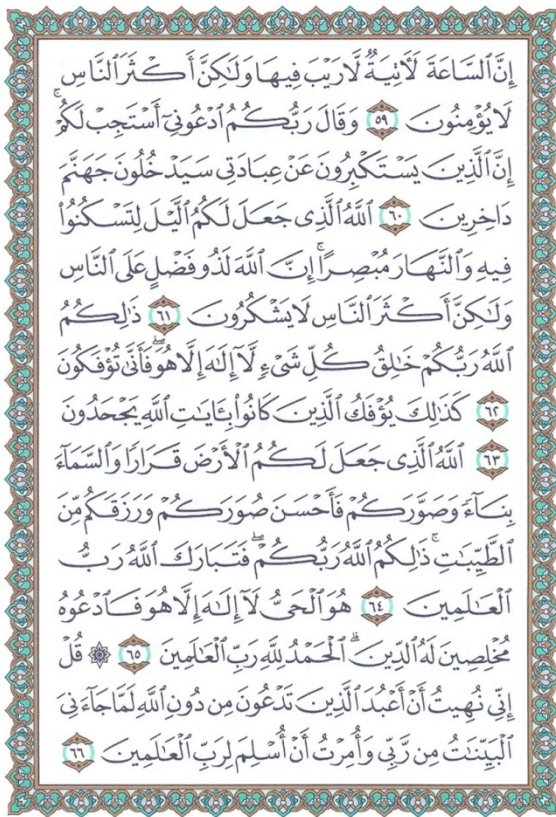 إِنَّ ٱلسَّاعَةَ لَأٓتِيَةٌ لَّا رَيۡبَ فِيهَا وَلَٰكِنَّ أَكۡثَرَ ٱلنَّاسِ
لَا يُؤۡمِنُونَ ٥٩ وَقَالَ رَبُّكُمُ ٱدۡعُونِيٓ أَسۡتَجِبۡ لَكُمۡۚ
إِنَّ ٱلَّذِينَ يَسۡتَكۡبِرُونَ عَنۡ عِبَادَتِي سَيَدۡخُلُونَ جَهَنَّمَ
دَاخِرِينَ ٦٠ ٱللَّهُ ٱلَّذِي جَعَلَ لَكُمُ ٱلَّيۡلَ لِتَسۡكُنُواْ
فِيهِ وَٱلنَّهَارَ مُبۡصِرًاۚ إِنَّ ٱللَّهَ لَذُو فَضۡلٍ عَلَى ٱلنَّاسِ
وَلَٰكِنَّ أَكۡثَرَ ٱلنَّاسِ لَا يَشۡكُرُونَ ٦١ ذَٰلِكُمُ
ٱللَّهُ رَبُّكُمۡ خَٰلِقُ كُلِّ شَيۡءٖ لَّآ إِلَٰهَ إِلَّا هُوَۖ فَأَنَّىٰ تُؤۡفَكُونَ
٦٢ كَذَٰلِكَ يُؤۡفَكُ ٱلَّذِينَ كَانُواْ بِـَٔايَٰتِ ٱللَّهِ يَجۡحَدُونَ
٦٣ ٱللَّهُ ٱلَّذِي جَعَلَ لَكُمُ ٱلۡأَرۡضَ قَرَارٗا وَٱلسَّمَآءَ
بِنَآءٗ وَصَوَّرَكُمۡ فَأَحۡسَنَ صُوَرَكُمۡ وَرَزَقَكُم مِّنَ
ٱلطَّيِّبَٰتِۚ ذَٰلِكُمُ ٱللَّهُ رَبُّكُمۡۖ فَتَبَارَكَ ٱللَّهُ رَبُّ
ٱلۡعَٰلَمِينَ ٦٤ هُوَ ٱلۡحَيُّ لَآ إِلَٰهَ إِلَّا هُوَ فَٱدۡعُوهُ
مُخۡلِصِينَ لَهُ ٱلدِّينَۗ ٱلۡحَمۡدُ لِلَّهِ رَبِّ ٱلۡعَٰلَمِينَ ٦٥ ۞ قُلۡ
إِنِّي نُهِيتُ أَنۡ أَعۡبُدَ ٱلَّذِينَ تَدۡعُونَ مِن دُونِ ٱللَّهِ لَمَّا جَآءَنِيَ
ٱلۡبَيِّنَٰتُ مِن رَّبِّي وَأُمِرۡتُ أَنۡ أُسۡلِمَ لِرَبِّ ٱلۡعَٰلَمِينَ ٦٦